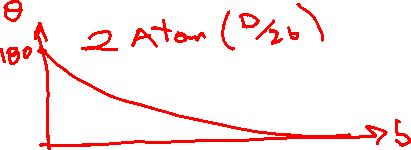 θ
180
2 Atan (D/2b)
b